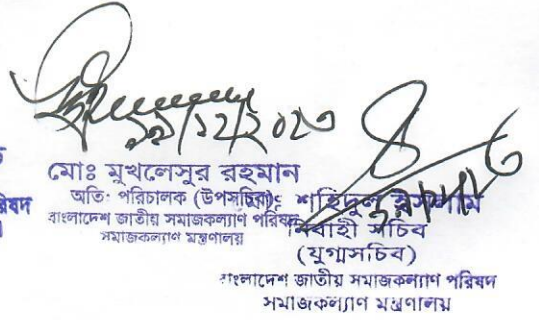 ১৯/১২/২০২৩
মোঃ মুখলেসুর রহমান
অতি: পরিচালক (উপসচিব)
বাংলাদেশ জাতীয় সমাজকল্যাণ পরিষদ
সমাজকল্যাণ মন্ত্রণালয়
শহিদুল ইসলাম
নির্বাহী সচিব
(যুগ্মসচিব)
বাংলাদেশ জাতীয় সমাজকল্যাণ পরিষদ
সমাজকল্যাণ মন্ত্রণালয়
রিষদ